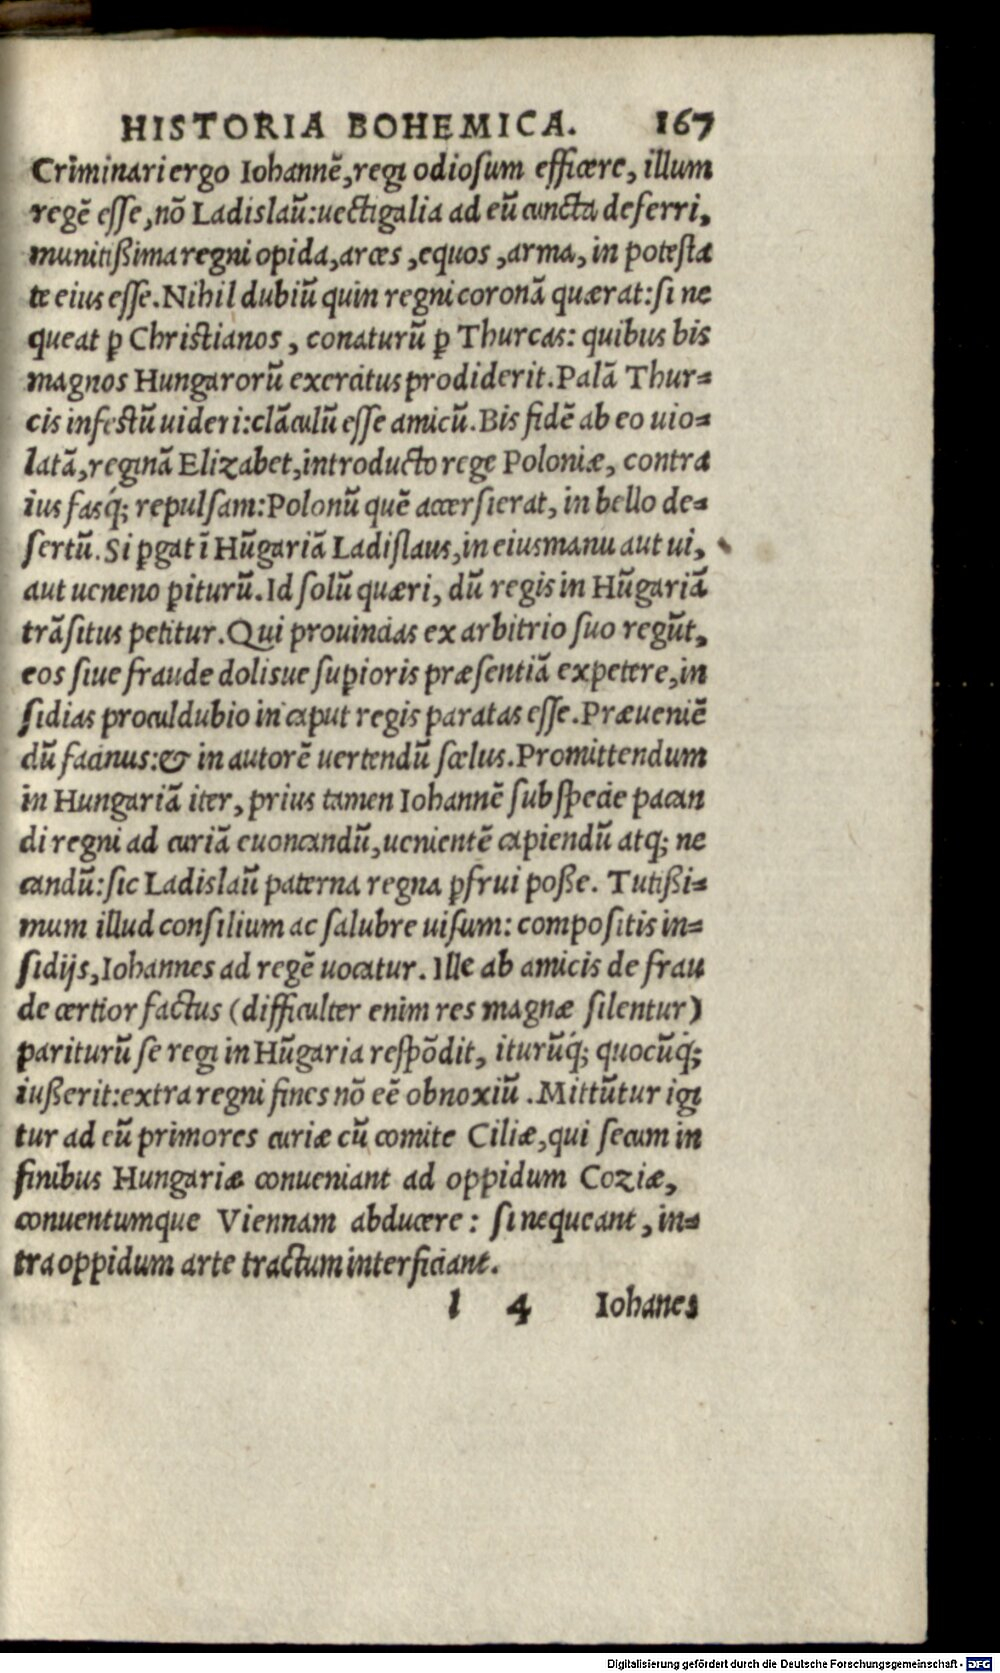 HISTORIA BOHEMICA. 167
Criminari ergo Iohannē, regi odiosum efficere, illum
regē esse, nō Ladislaū: uectigalia ad eū cuncta deferri,
munitißima regni opida, arces, equos, arma, in potesta
te eius esse. Nihil dubiū quin regni coronā quærat: si ne
queat ꝑ Christianos, conaturū ꝑ Thurcas: quibus bis
magnos Hungarorū exercitus prodiderit. Palā Thur=
cis infestū uideri: clāculū esse amicū. Bis fidē ab eo uio=
latā, reginā Elizabet, introducto rege Poloniæ, contra
ius fasq́; repulsam: Polonū quē accersierat, in bello de=
sertū. Si ꝑgat ī Hūgariā Ladislaus, in eius manu aut ui,
aut ueneno ꝑiturū. Id solū quæri, dū regis in Hūgariā
trāsitus petitur. Qui prouincias ex arbitrio suo regūt,
eos siue fraude dolisue suꝑioris præsentiā expetere, in
sidias proculdubio in caput regis paratas esse. Præueniē
dū facinus: & in autorē uertendū scelus. Promittendum
in Hungariā iter, prius tamen Iohannē sub specie pacan
di regni ad curiā euoncandū, uenientē capiendū atq; ne
candū: sic Ladislaū paterna regna ꝑfrui poße. Tutißi=
mum illud consilium ac salubre uisum: compositis in=
sidijs, Iohannes ad regē uocatur. Ille ab amicis de frau
de certior factus (difficulter enim res magnæ silentur)
pariturū se regi in Hūgaria respōdit, iturūq́; quocūq́;
iußerit: extra regni fines nō eē obnoxiū. Mittūtur igi
tur ad eū primores curiæ cū comite Ciliæ, qui secum in
finibus Hungariæ conueniant ad oppidum Coziæ,
conuentumque Viennam abducere: si nequeant, in=
tra oppidum arte tractum interficiant.
l 4 Iohanes
Digitalisierung gefördert durch die Deutsche Forschungsgemeinschaft - DFG